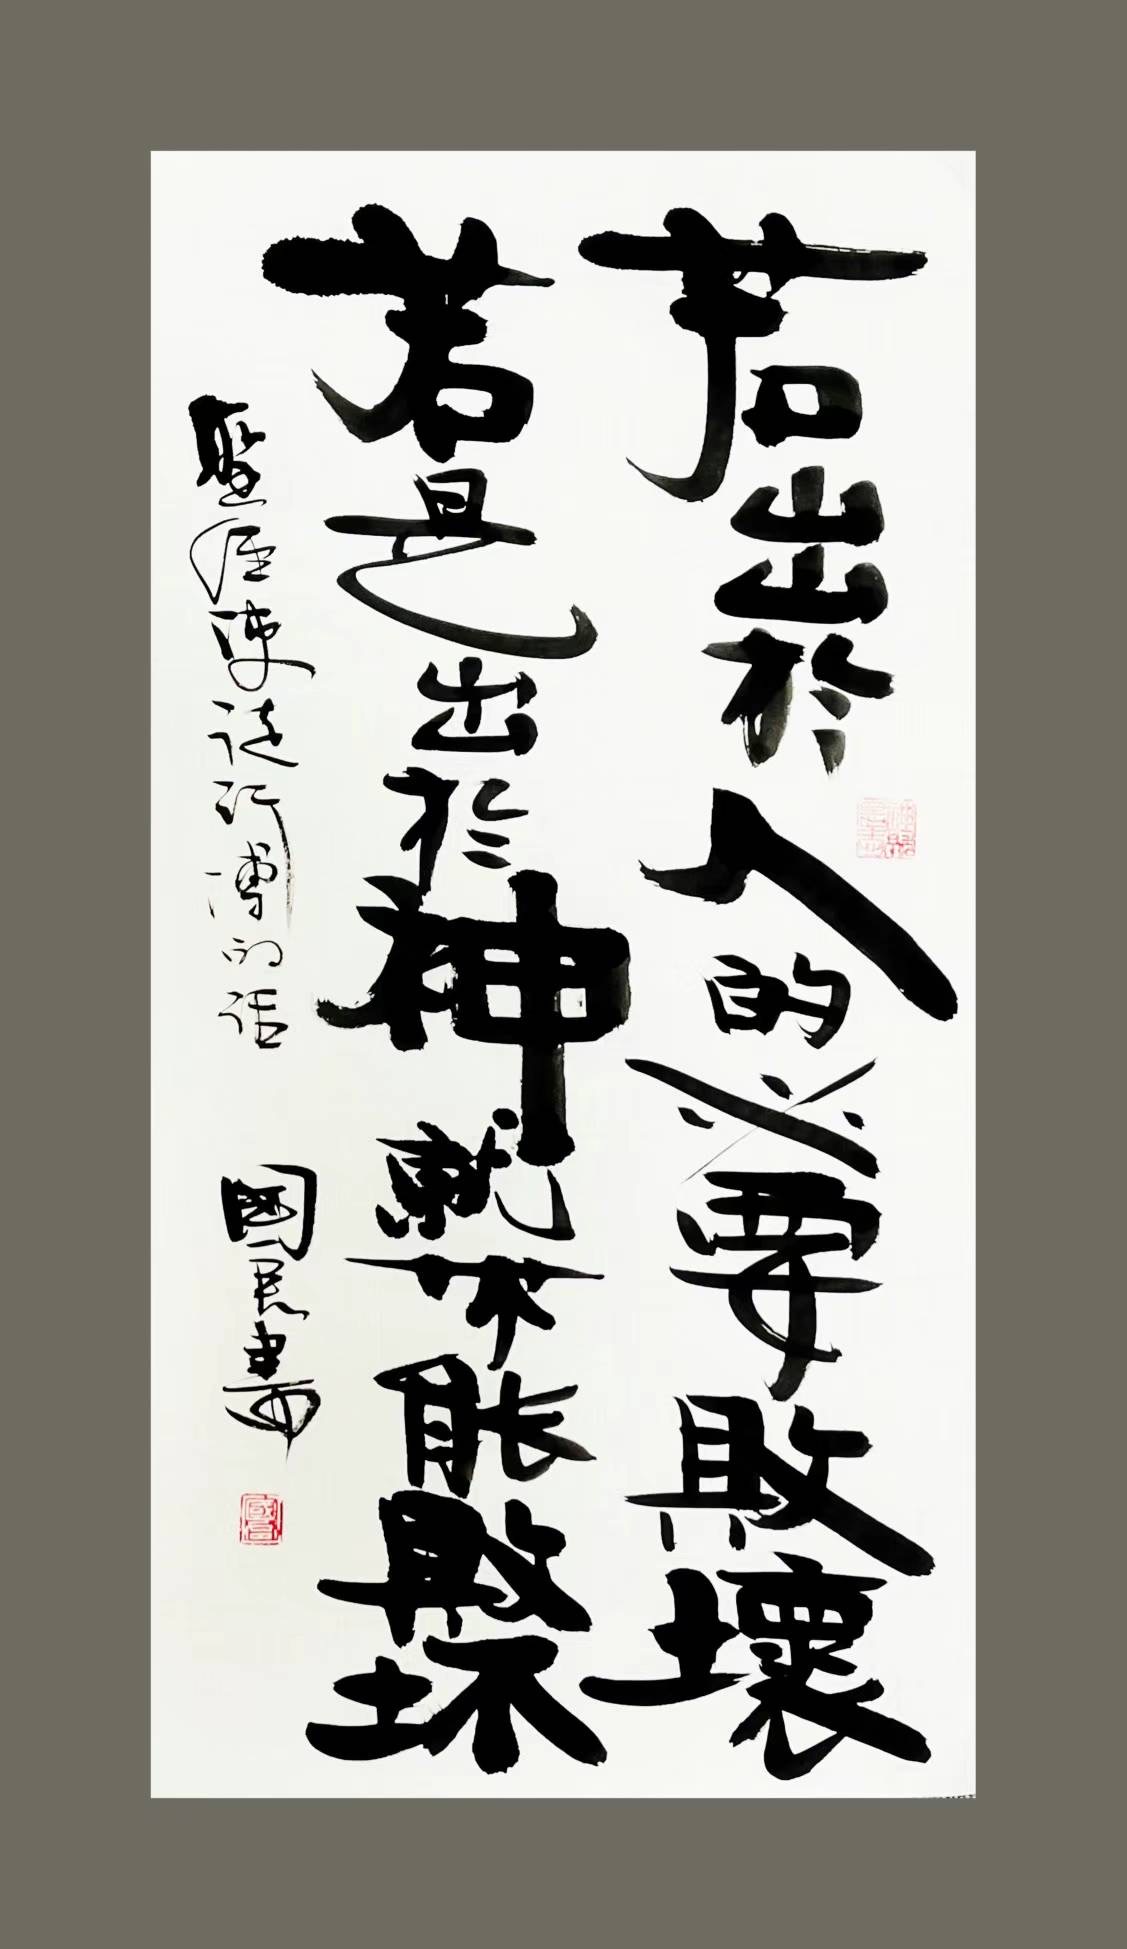 若出於人的必要敗壞
若是出於神就不能敗坏
聖經使徒行傳的話 國民書